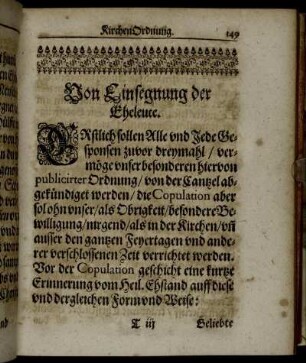 KirchenOrdnung. 149
Von Einsegnung der
Eheleute.
ERstlich sollen Alle vnd Jede Ge-
sponsen zuvor dreymahl / ver-
möge vnser besonderen hiervon
publicirter Ordnung / von der Cantzel ab-
gekündiget werden / die Copulation aber
sol ohn vnser / als Obrigkeit / besondere Be-
willigung / nirgend / als in der Kirchen / vn̄
ausser den gantzen Feyertagen vnd ande-
rer verschlossenen Zeit verrichtet werden.
Vor der Copulation geschicht eine kurtze
Erinnerung vom Heil. Ehstand auff diese
vnd dergleichen Form vnd Weise:
T iij Geliebte